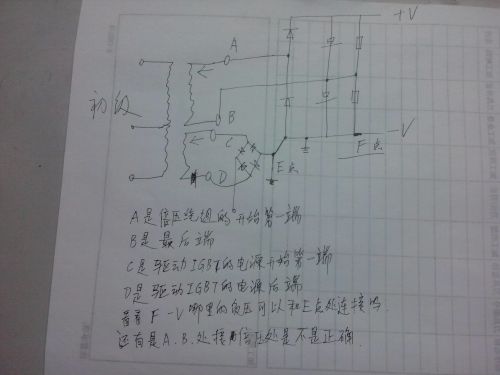 A
+V
初级
B
C
-V
E点
F点
D
A是倍压绕组的开始第一端
B是最后端
C是驱动IGBT的电源开始第一端
D是驱动IGBT的电源后端
看看F-V哪里的负压可以和E点处连接吗.
还有是A.B.处接倍压处是不是正确.